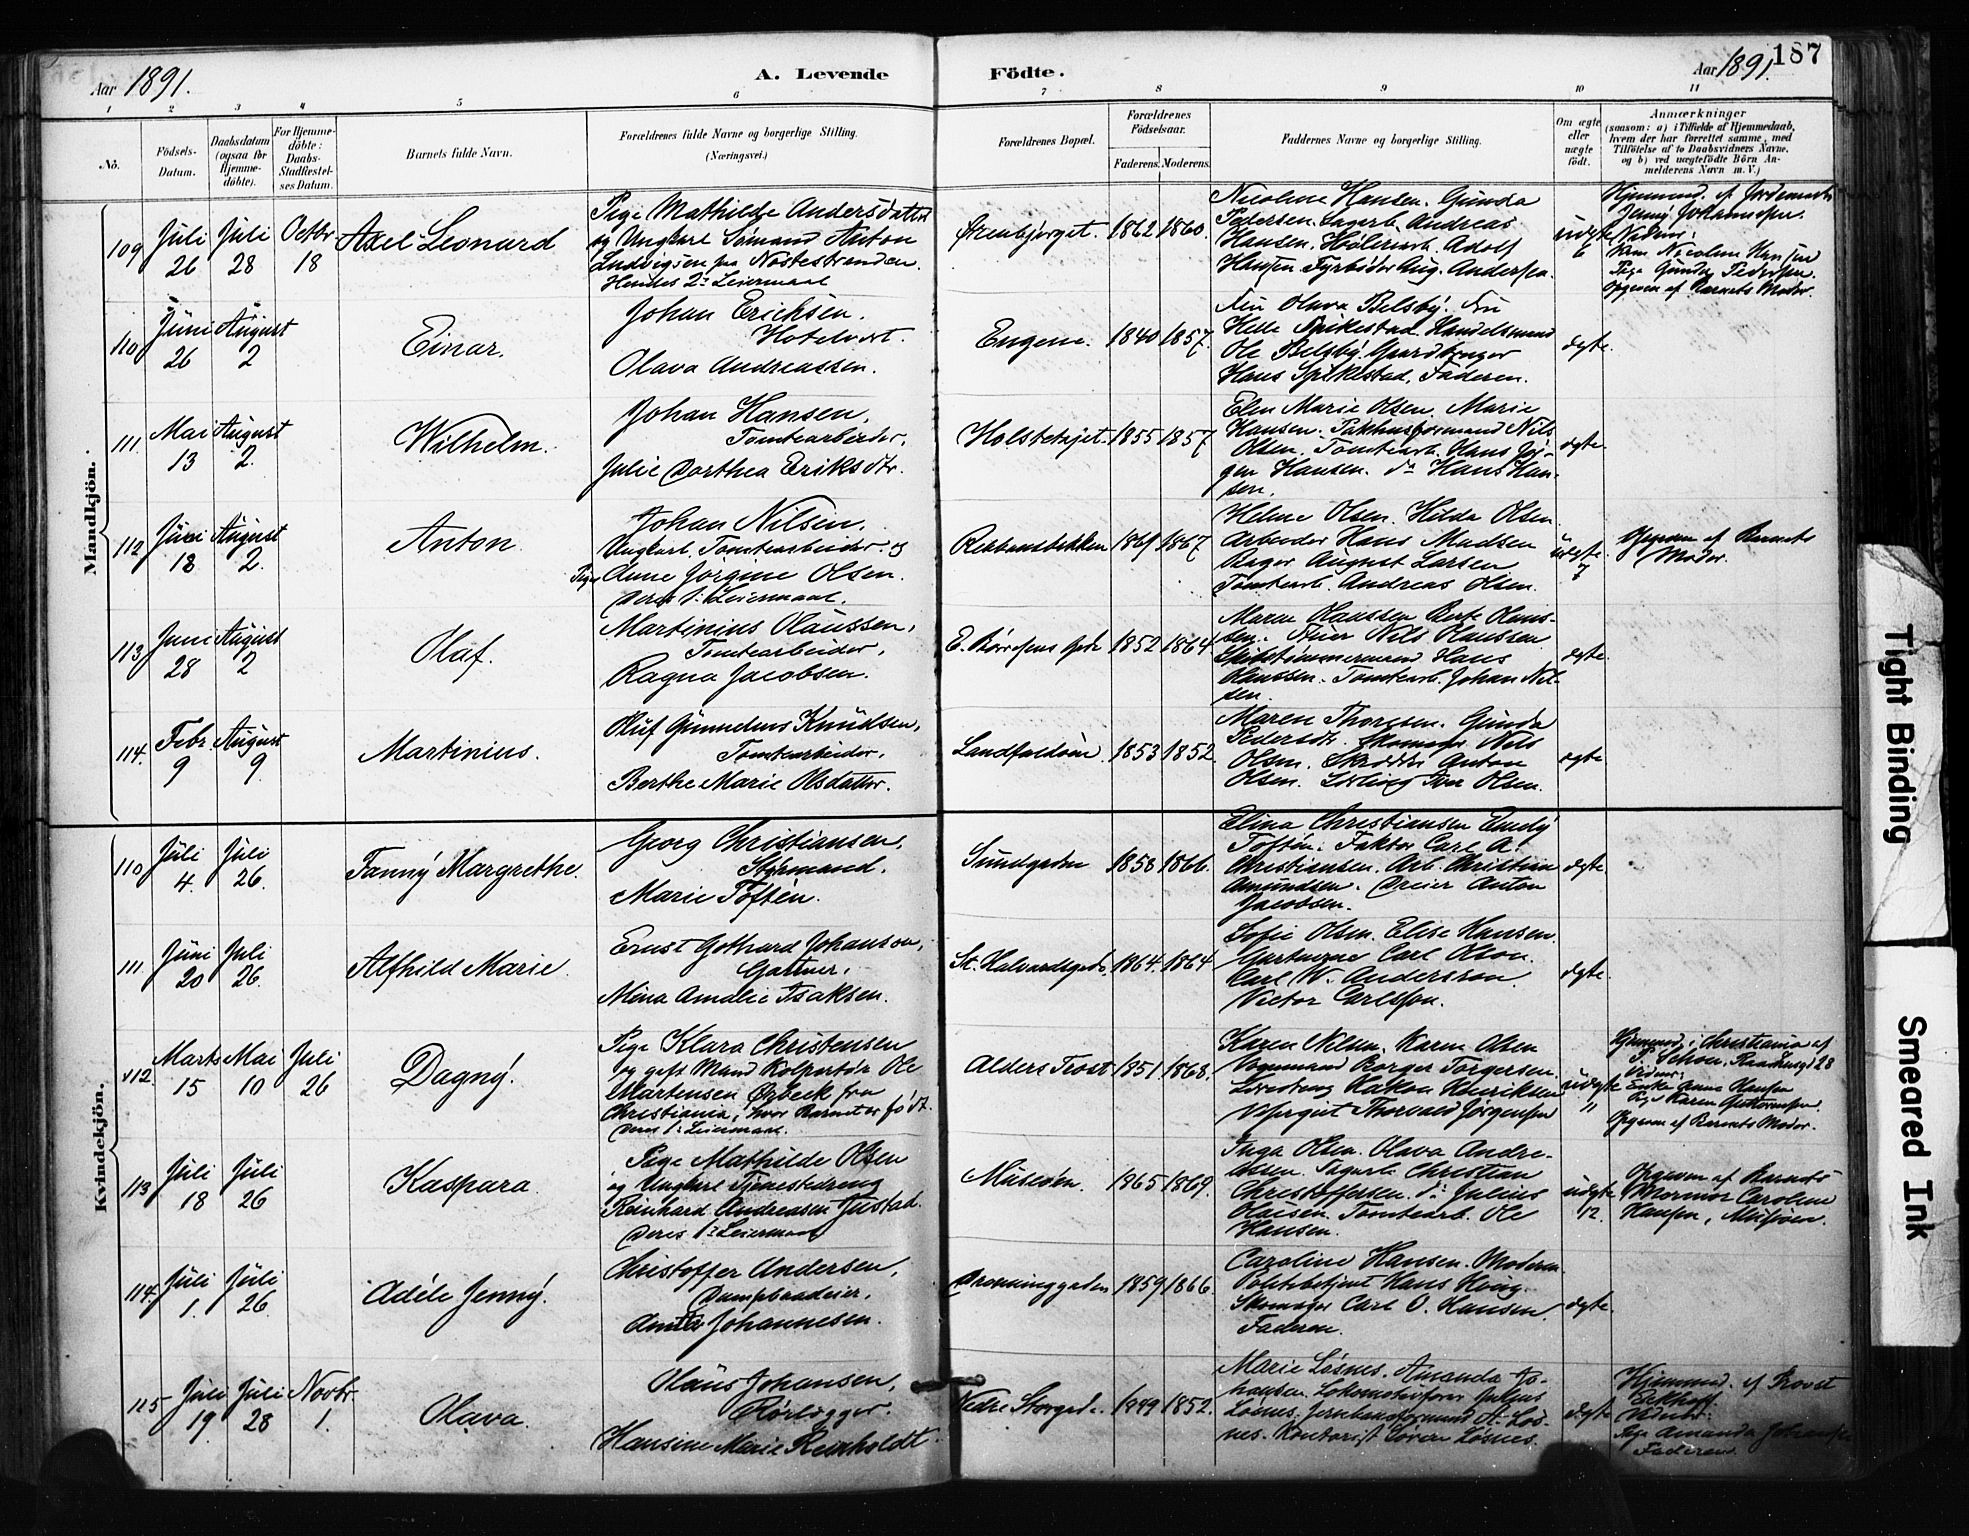 Aar 1891.
A. Levende
Födte.
Aar 1891.
187
1
2
3
4
5
6
7
8
9
10
11
No.
Födsels-
Datum.
Daabsdatum
(ogsaa for
Hjemme-
döbte).
For Hjemme-
döbte:
Daabs-
Stadfæstel-
ses Datum.
Barnets fulde Navn.
Forældrenes fulde Navne og borgerlige Stilling.
(Næringsvei.)
Forældrenes Bopæl.
Forældrenes
Födselsaar.
Faderens.
Moderens.
Faddernes Navne og borgerlige Stilling.
Om ægte
eller
uægte
födt.
Anmærkninger
(saasom: a) i Tilfælde af Hjemmedaab,
hvem der har forrettet samme, med
Tilföielse af to Daabsvidners Navne,
og b) ved uægtefödte Börn An-
melderens Navn m. V.)
Mandkjön.
109
Juli
26
Juli
28
Octbr
18
Axel Leonard
Pige Mathilde Andersdatter
og Ungkarl Sömand Anton
Ludvigsen fra Nöstestranden.
Hendes 2: Leiermaal
1862
1860.
Nicoline Hansen. Gunda
Pedersen. Sagarb. Andreas
Hansen. Höleriarb. Adolf
Hansen. Fyrböder Aug. Andersen.
uægte
6
Hjemmed. af Jordemoder
Jenny Johannesen.
Vidner:
Kone Nicoline Hansen
Pige Gunda Pedersen.
Opgiven af Barnets Moder.
110
Juni
26
August
2
Einar.
Johan Ericksen.
Hotelvert.
Olava Andreassen.
Engene.
1840
1857.
Fru Olava Belsby. Fru
Helle Spikestad. Handelsmand
Ole Belsby. Gaardbruger
Hans Spikestad. Faderen.
ægte.
111.
Mai
13
August
2.
Wilhelm.
Johan Hansen,
Tomtearbeider,
Julie Dorthea Eriksdtr.
1855
1857
Elen Marie Olsen. Marie
Hansen. Pakhusformand Nils
Olsen. Tomtearb. Hans Jör-
gen Hansen. do Hans Han-
sen.
ægte.
112
Juni
18
August
2.
Anton
Johan Nilsen.
Ungkarl, Tomtearbeider. og
Pige Anne Jörgine Olsen.
Deres 1: Leiermaal.
Rebbansbakken
1869
1867
Helene Olsen. Hilda Olsen.
Arbeider Hans Madsen
Bager August Larsen
Tomtearb. Andreas Olsen.
uægte.
7
Opgiven af Barnets
Moder.
113
Juni
28
August
2
Olaf.
Martinius Olaussen,
Tomtearbeider,
Ragna Jacobsen.
1852
1864
Maren Olaussen Berte Claus-
sen. Nils Olaussen
Skibstömmermand Hans
Claussen. Tomtearb. Johan Nil-
sen.
ægte.
114.
Febr.
9
August
9
Martinius.
Oluf Gunnelius Knudsen,
Tomtearbeider,
Berthe Marie Olsdatter.
Landfaldöen
1853
1852
Maren Thoresen. Gunda
Pedersdtr Skomager Nils
Olsen. Skrædder Anton
Olsen. Lærling Iver Olsen.
ægte
Kvindekjön.
110
Juli
4.
Juli
26.
Fanny Margrethe.
Georg Christiansen,
Styrmand.
Marie Toftén.
Sundgaden
1858
1866.
Elina Christiansen Emily
Toftén. Faktor Carl A.
Christiansen. Arb. Christian
Amundsen. Dreier Anton
Jacobsen.
ægte
111.
Juni
20
Juli
26.
Alfhild Marie.
Ernst Gothard Johanson,
Gartner.
Mina Amalie Isaksen.
St. Halvardsgade.
1864.
1864
Sofie Olsen. Elise Hansen
Gartnerne Carl Olson.
Carl W. Andersson.
Victor Carlsson.
ægte.
112.
Marts
15
Mai
10
Juli
26
Dagny.
Pige Klara Christensen
og gift Mand Kolportör Ole
Martensen Örbeck fra
Christiania, hvor Barnet er född.
Deres 1: Leiermaal.
Alders Trost
1851.
1868.
Karen Nilsen. Karen Olsen
Vognmand Borger Torgersen.
Haakon Henriksen
Thorvald Jörgensen
uægte
11
Hjemmed. i Christiania af
P. Schou, 28
Vidner:
Enke Anne Hansen
Pige Karen
Opgiven af Barnets Moder.
113
Juli
18
Juli
26
Kaspara.
Pige Mathilde Olsen
og Ungkarl Tjenestedreng
Reinhard Andreasen Justad.
Deres 1: Leiermaal
Museöen.
1865
1869.
Inga Olsen. Olava Andre-
assen. Sagarb. Christian
Christoffersen. do Julius
Olaisen. Tomtearb. Ole
Hansen.
uægte
12.
Opgiven af Barnets
Mormor Caroline
Hansen, Museöen.
114.
Juli
1.
Juli
26
Adéle Jenny.
Christoffer Andersen,
Dampbaadeier,
Anna Johannesen.
Dronninggaden
1859
1866
Caroline Hansen. Moderen.
Politibetjent Hans Houg.
Skomager Carl O. Hansen.
Faderen.
ægte.
115
Juli
19
Juli
28
Novbr.
1.
Olava.
Olaus Johansen,
Rörlægger.
Hansine Marie Reinholdt.
Nedre Storgade.
1849
1852.
Marie Lösnes. Amanda Jo-
hansen. Lokomotivförer Julius
Lösnes. Jernbaneformand A. Lös-
nes. Kontorist Sören Lösnes.
ægte
Hjemmed. af Provst
Eckhoff.
Vidner:
Pige Amanda Johansen
Faderen.
Tight Binding
Smeared Ink